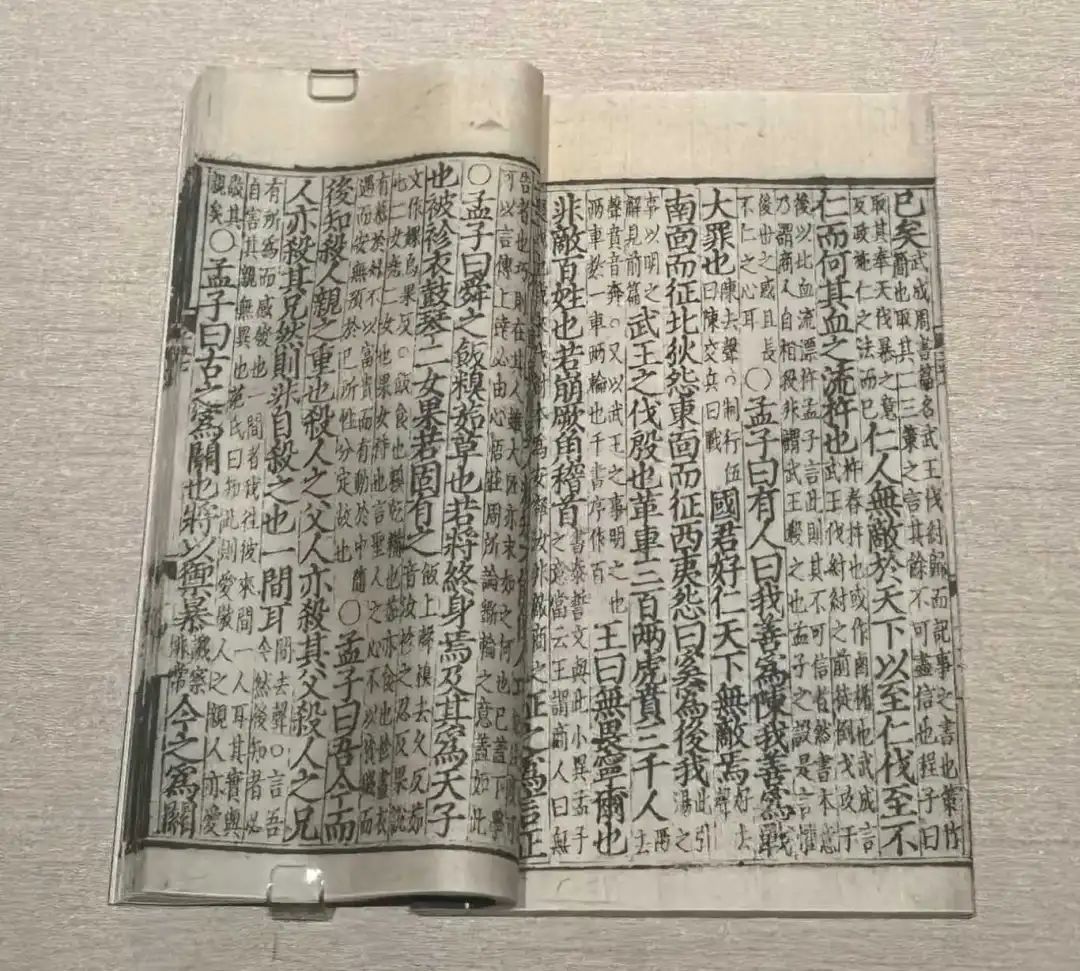 已矣武成周書篇名武王伐紂歸而記事之書也策竹
簡也取其二三策之言其餘不可盡信也程子曰
取其奉天伐暴之意
反政施仁之法而已仁人無敵於天下以至仁伐至不
仁而何其血之流杵也杵舂杵也或作鹵楯也武成言
武王伐紂紂之前徒倒戈攻于
後以北血流漂杵孟子言此則其不可信者然書本意
乃謂商人自相殺非謂武王殺之也孟子之設是言懼
後世之惑且長
不仁之心耳○孟子曰有人曰我善為陳我善為戰
大罪也陳去聲○制行伍
曰陳交兵曰戰國君好仁天下無敵焉好去
聲
南面而征北狄怨東面而征西夷怨曰奚為後我此引
湯之
事以明之
解見前篇武王之伐殷也革車三百兩虎賁三千人兩去
聲賁音奔○又以武王之事明之也
兩車數一車兩輪也千書序作百王曰無畏寧爾也
非敵百姓也若崩厥角稽首書泰誓文與此小異孟子
之意當云王謂商人曰無
征之為言正
告者也巧則在其人雖大匠亦末如之何也已蓋下學
可以言傳上達必由心悟莊周所論斲輪之意蓋如此
○孟子曰舜之飯糗茹草也若將終身焉及其為天子
也被袗衣鼓琴二女果若固有之飯上聲糗去久反茹
音汝袗之忍反果說
文作婐烏果反○飯食也糗乾糒也茹亦食也袗畫衣
也二女堯二女也果女侍也言聖人之心不以貧賤而
有慕於外不以富貴而有動於中隨
遇而安無預於己所性分定故也○孟子曰吾今而
後知殺人親之重也殺人之父人亦殺其父殺人之兄
人亦殺其兄然則非自殺之也一間耳間去聲○言吾
今然後知者必
有所為而感發也一間者我往彼來間一人耳其實與
自害其親無異也范氏曰知此則愛敬人之親人亦愛
敬其
親矣○孟子曰古之為關也將以禦暴譏察
非常今之為關